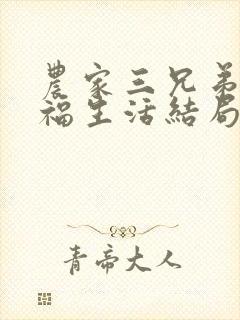 農家三兄弟
福生活結局
青帝大人